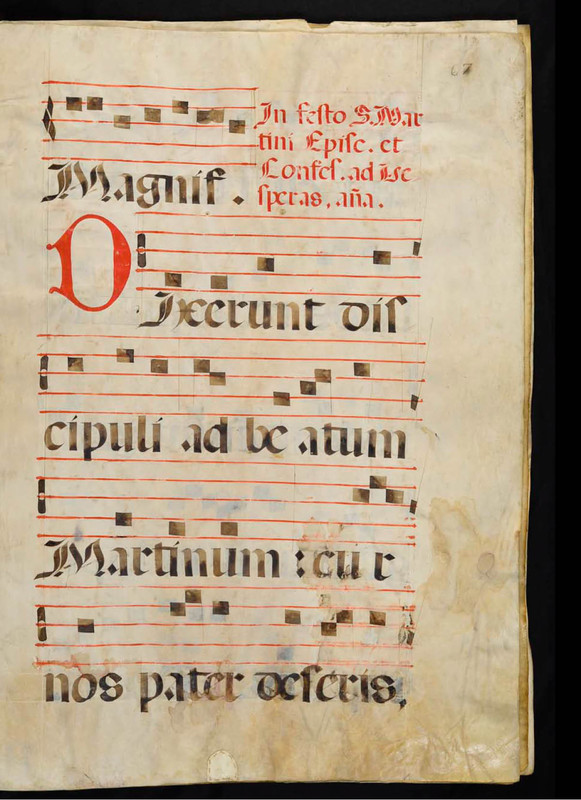 67
In festo S. Mar
tini Episc. et
Confes. ad Ve
speras, aña.
Magnif.
Dixerunt dis
cipuli ad be atum
Martinum : cu r
nos pater deseris,